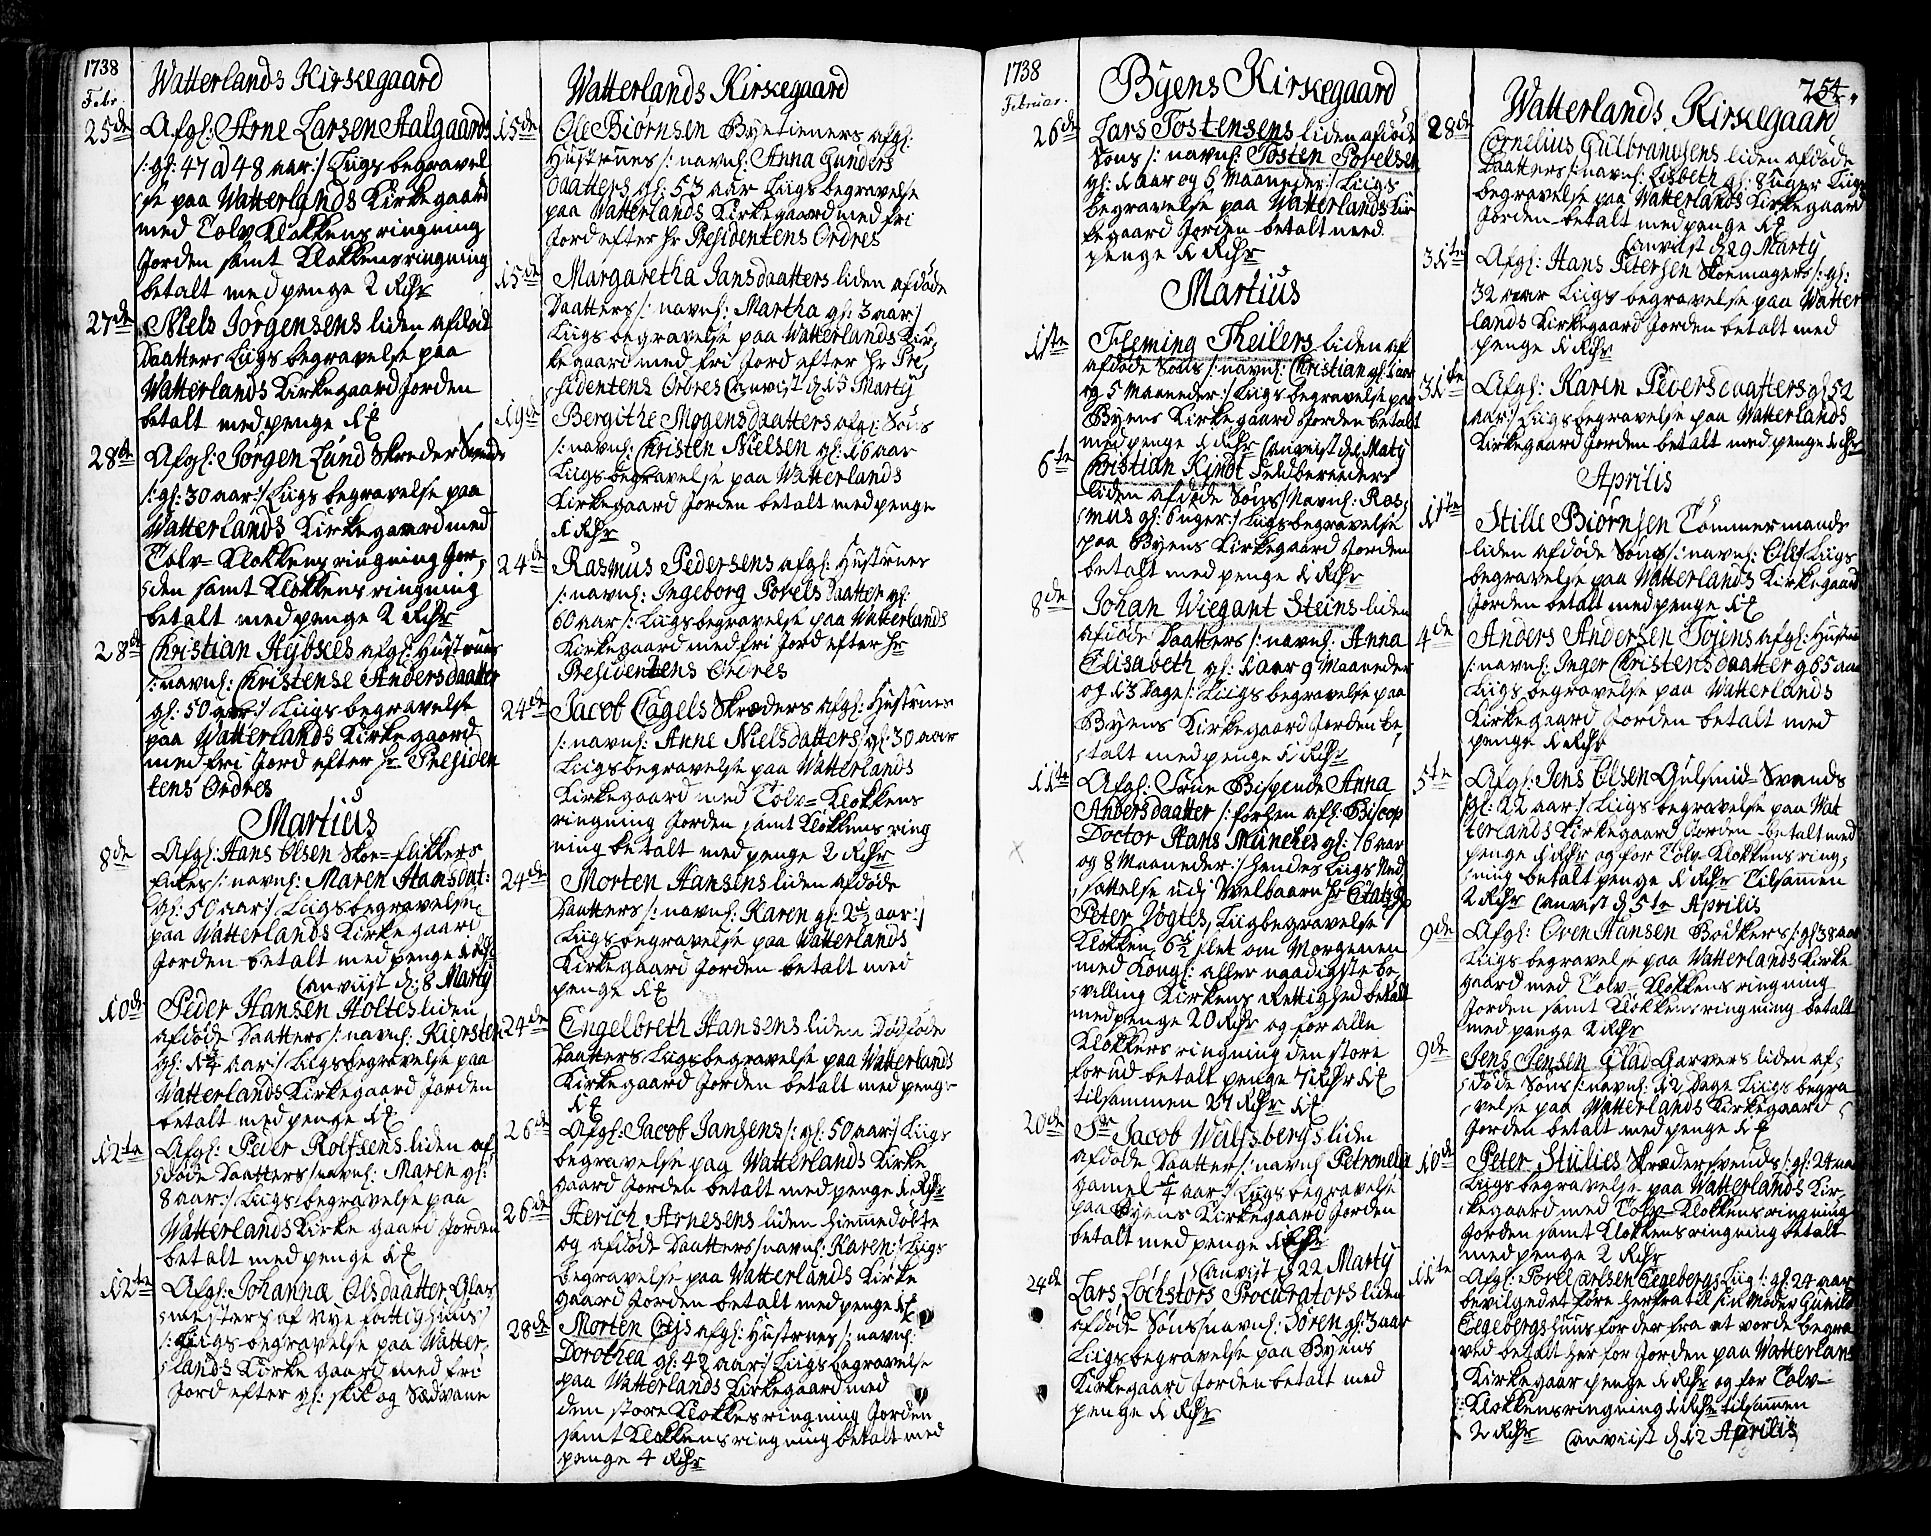 1738
Febr.
Watterlands Kirkegaard
25de
Afgl: Arne Larsen Aalgaards
/: gl: 47 a 48 aar :/ Liigs begravel
se paa Watterlands Kirkegaard
med Tolv Klokkens ringning
Jorden samt Klokkens ringning
betalt med penge 2 Rdr
27de
Niels Jörgensens liden afdöd
Daatters Liigs begravelse paa
Watterlands Kirkegaard Jorden
betalt med penge
28de
Afgl: Jörgen Lund Skreder Svends
/: gl: 30 aar :/ Liigs begravelse paa
Watterlands Kirkegaard med
Tolv Klokkens ringning Jor,
den samt Klokkens ringning
betalt med penge 2 Rdr
28de
Christian Hejbsees afgl: Hustrues
/: navnl: Christense Andersdaatter
gl: 50 aar :/ Liigs begravelse
paa Watterlands Kirkegaard
med fri Jord efter Hr Presiden
tens Ordres
Martius
8de
Afgl: Hans Olsen Skoe-flikkers
Enkes /: navnl: Maren Hansdat:
gl: 50 aar :/ Liigsbegravelse
paa Watterlands Kirkegaard
Jorden betalt med penge 1 Rdr
anviist d: 8 Martij
10de
Peder Hansen Holtes liden
afdöde Daatters /: navnl: Kiersten
gl: 1¼ aar :/ Liigsbegravelse paa
Watterlands Kirkegaard Jorden
betalt med penge
12te
Afgl: Peder Rolfsens liden af,
döde Daatters /: navnl: Maren gl:
8 aar :/ Liigs begravelse paa
Watterlands Kirke gaard Jorden
betalt med penge
12te
Afgl: Johanna Olsdaatter Glas
mesters af Nye fattighuus /
Liigs begravelse paa Watter,
lands Kirke gaard med fri
Jord efter gl: skik og Sædvane
Watterlands Kirkegaard
15de
Ole Biörnsen Byetieners afgl:
Hustrues /: navnl: Anna Gunders
daatters gl: 53 aar Liigs begravelse
paa Watterlands Kirkegaard med fri
Jord efter Hr Presidentens Ordres
15de
Margaretha Jansdaatters liden afdöde
Daatters /: navnl: Martha gl: 3 aar /
Liigs begravelse paa Watterlands Kir,
kegaard med fri Jord efter Hr Pre,
sidentens Ordres anvist d 15 Martij
19de
Bergithe Mogensdaatters afgl: Söns
/: navnl: Christen Nielsen gl: 16 aar
Liigs begravelse paa Watterlands
Kirkegaard Jorden betalt med penge
1 Rdr
24de
Rasmus Pedersens afgl: Hustrues
/: navnl: Ingeborg Povels Daatter gl:
60 aar /: Liigsbegravelse paa Watterlands
Kirkegaard med fri Jord efter Hr
Presidentens Ordres
24de
Jacob Cagels Skræders afgl: Hustrues
/: navnl: Anne Nielsdatters /: gl: 30 aar
Liigsbegravelse paa Watterlands
Kirkegaard med Tolv-Klokkens
ringning Jorden samt Klokkens ring
ning betalt med penge 2 Rdr
24de
Morten Hansens liden afdöde
Daatters /: navnl: Karen gl: 2½ aar :/
Liigs begravelse paa Watterlands
Kirkegaard Jorden betalt med
penge
24de
Engelbreth Hansens liden Dödföde
Daatters Liigsbegravelse paa Watterlands
Kirkegaard Jorden betalt med penge
26de
Afgl: Jacob Jansens /: gl: 50 aar :/ Liigs
begravelse paa Watterlands Kirke
gaard Jorden betalt med penge 1 Rdr
26de
Aerich Arnesens liden hiemmedöbte
og afdöde Daatters /: navnl: Karen :/ Liigs
begravelse paa Watterlands Kirke
gaard Jorden betalt med penge
28de
Morten afgl: Hustrues /: navnl:
Dorothea gl: 42 aar :/ Liigs begravelse
paa Watterlands Kirkegaard med
den store Klokkes ringning Jorden
samt Klokkens ringning betalt med
penge 4 Rdr
1738
Februar.
Byens Kirkegaard
26de
Lars Tostensens liden afdöde
Söns /: navnl: Tosten Povelsen
gl: 1 aar og 6 Maaneder :/ Liigs
begravelse paa Watterlands Kir
kegaard Jorden betalt med
penge 1 Rdr
Martius
1ste
Fleming Theilers liden af
afdöde Söns /: navnl: Christian gl: 1 aar
og 5 Maaneder :/ Liigs begravelse paa
Byens Kirkegaard Jorden betalt
med penge 1 Rdr anviist d 1 Martij
6te
Christian Kindt Feldbereeders
liden afdöde Söns /: Navnl: Ras,
mus gl: 6 uger :/ Liigs begravelse
paa Byens Kirkegaard Jorden
betalt med penge 1 Rdr
8de
Johan Wiegant Steins liden
afdöde Daatters /: navnl: Anna
Elisabeth gl: 1 aar 9 Maaneder
og 13 Dage /: Liigs begravelse paa
Byens Kirkegaard Jorden be,
talt med penge 1 Rdr
11te
Afgl: Frue Bispinde Anna
Andersdaatter /: forhen afl: Biscop
Doctor Hans Münches gl: 76 aar
og 8 Maaneder :/ hendes Liigs Ned,
sættelse udj Velbaarn Hr Etatz R
Peter Vogtes, Liigbegravelse
Klokken 6½ slet om Morgenen
med Kongl: aller naadigste be,
villing Kirkens Rettighed betalt
med penge 20 Rdr og for alle
Klokkers ringning den store
forud betalt penge 7 Rdr
tilsammen 27 Rdr
20de
Sr Jacob Wulfsbergs liden
afdöde Daatter /: navnl: Petronella
gamel ¼ aar :/ Liigs begravelse
paa Byens Kirkegaard Jorden
betalt med penge 1 Rdr
anviist d 22 Martij
24de
Lars Löchstörs Procurators liden
afdöde Söns /: navnl: Sören gl: 3 aar
Liigsbegravelse paa Byens
Kirkegaard Jorden betalt med
penge 1 Rdr
254.
Watterlands Kirkegaard
28de
Cornelius Gulbrandsens liden afdöde
Daatters /: navnl: Lisbeth gl: 8 uger Liigs
begravelse paa Watterlands Kirkegaard
Jorden betalt med penge
anviist d 29 Martij
31te
Afgl: Hans Petersen Skoemagers /: gl:
32 aar Liigs begravelse paa Watter
lands Kirkegaard Jorden betalt med
penge 1 Rdr
31te
Afgl: Karen Pedersdaatters gl: 52
aar :/ Liigsbegravelse paa Watterlands
Kirkegaard Jorden betalt med penge 1 Rdr
Aprilis
1ste
Stille Biörnsen Tömmermands
liden afdöde Söns /: navnl: Ole / Liigs
begravelse paa Watterlands Kirkegaard
Jorden betalt med penge
4de
Anders Andersen Töjens afgl: Hustrues
/: navnl: Inger Christensdaatter gl 65 aar
Liigs begravelse paa Watterlands
Kirkegaard Jorden betalt med
penge 1 Rdr
5te
Afgl: Jens Olsen Gulsmid-Svends
/: gl: 22 aar :/ Liigs begravelse paa Wat
terlands Kirkegaard Jorden betalt med
penge 1 Rdr og for Tolv-Klokkens ring,
ning betalt penge 1 Rdr Tilsammen
2 Rdr anvist d 5te Aprilis
9de
Afgl: Oven Hansen Bödkers /: gl 38 aar
Liigs begravelse paa Watterlands Kirke
gaard med Tolv-Klokkens ringning
Jorden samt Klokkens ringning betalt
med penge 2 Rdr
9de
Jens Jensen Glad Garvers liden af,
döde Söns /: navnl: 12 Dage Liigs begra
velse paa Watterlands Kirkegaard
Jorden betalt med penge
10de
Peter Stulies Skræder Svends /: gl: 24 aar
Liigs begravelse paa Watterlands Kir,
kegaard med Tolv-Klokkens ringning
Jorden samt Klokkens ringning betalt
med penge 2 Rdr
11te
Afgl: Povel Carlsen Eegebergs Liig /: gl: 24 aar
bevilget at före herfra til sin Moder Gunild
Eegebergs huus for der fra at vorde begra
ved betalt her for Jorden paa Watterlands
Kirkegaar penge 1 Rdr og for Tolv-
Klokkens ringning 1 Rdr tilsammen
2 Rdr anviist d 12 Aprilis